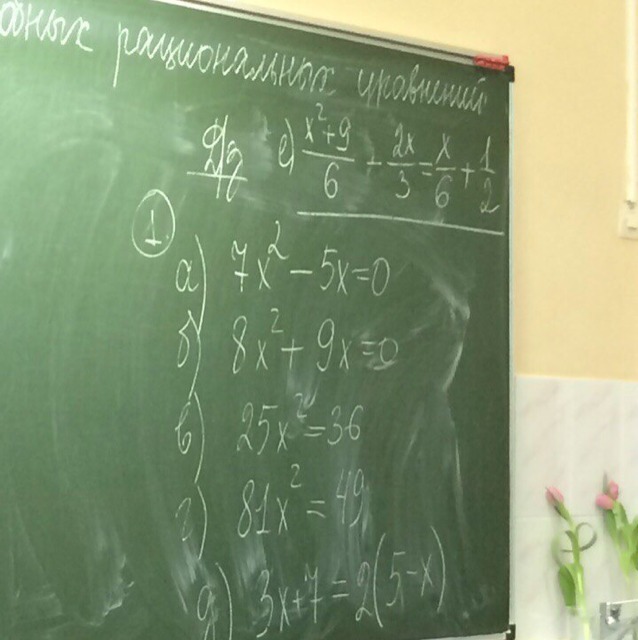 рациональных уравнений
Д/з е) (x²+9)/6 - 2x/3 = x/6 + 1/2
1
а) 7x² - 5x = 0
б) 8x² + 9x = 0
в) 25x² = 36
г) 81x² = 49
д) 3x + 7 = 2(5 - x)